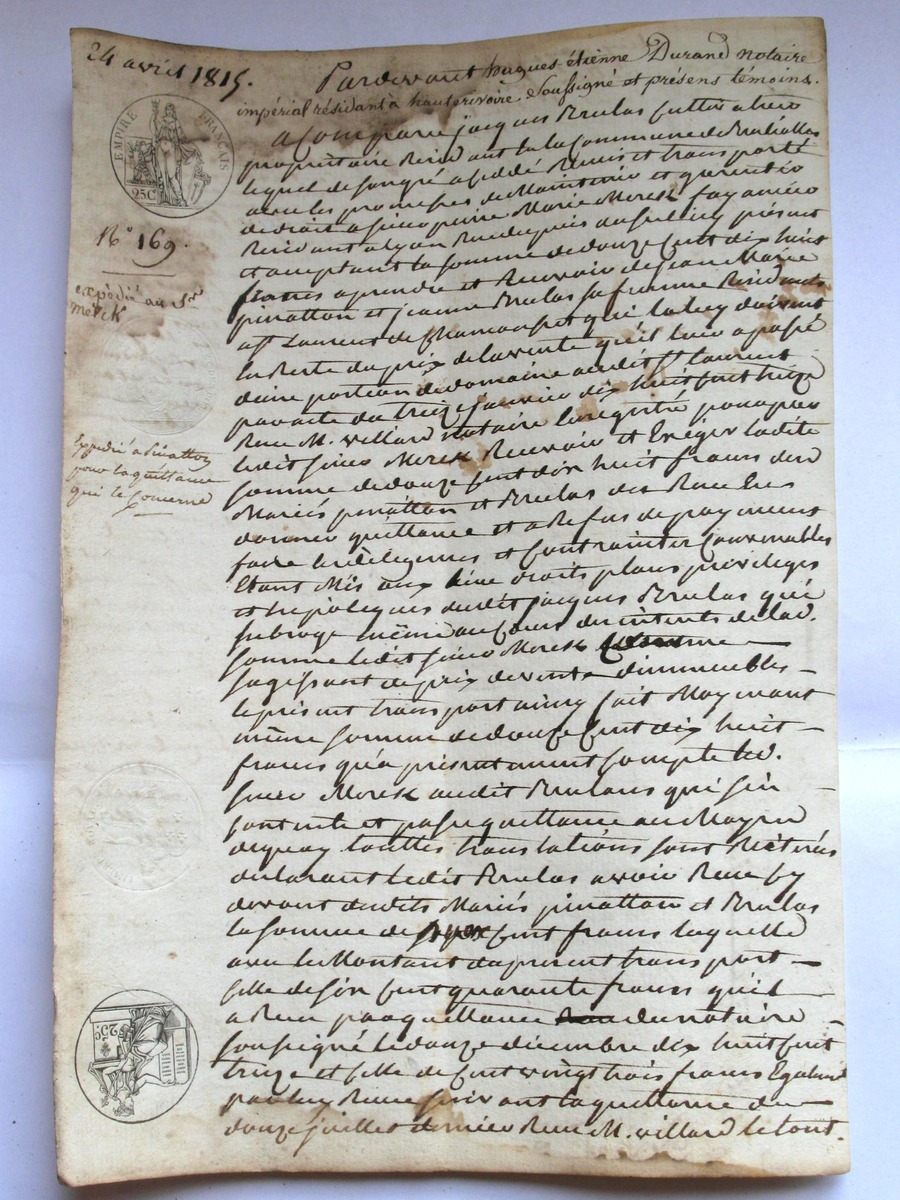 24 avril 1815.
Pardevant hugues étienne Durand notaire
impérial résidant à hauterivoire soussigné et présens témoins.
EMPIRE FRANÇAIS
25C
a Comparu jacques Brulas cultivateur
propriétaire Résidant en la Commune de
lequel de son gré a cédé Remis et transporté
avec les promesses de Maintenir et garentir
de droit a sieur pierre Marie Merck
Résidant a lyon Rue présent
et acceptant la somme de douze Cent dix huit
francs a prendre et Recevoir de jean Marie
pinatton et jeanne Brulas sa femme Résidants
a St Laurent de Chamousset qui la luy doivent
la Reste du prix de la vente qu'il leur a passé
d'une portion de domaine audit St laurent
par acte du treize janvier dix huit Cent treize
Reçu M. villard Notaire Enregistré pour par
ledit sieur Merck Recevoir et Exiger ladite
somme de douze Cent dix huit francs desd
Mariés pinatton et Brulas du Reçu En
donner quittance et a Refus de payement
faire les diligences et Contraintes Convenables
Etant Mis aux lieu droits places privileges
et hepoteques dudit jacques Brulas qui
subroge même au Cours des interets de lad.
somme ledit sieur Merck
s'agissant de prix de vente d'immeubles
le présent transport ainsy fait Moyenant
même somme de douze Cent dix huit
francs qu'a présentement Compté led.
sieur Merck audit Brulas qui s'en
contente et passe quittance au Moyen
de quoy touttes translations sont Réiterés
déclarant ledit Brulas avoir Reçu cy
devant desdits Mariés pinatton et Brulas
la somme de Cent francs laquelle
avec le Montant du present transport
celle de six Cent quarante francs qu'il
a Reçu par quittance du notaire
soussigné le douze décembre dix huit Cent
treize et celle de Cent vingt trois francs Egalement
par luy Reçue suivant la quittance du
douze juillet dernier Reçu M. villard le tout.
N° 169.
expédié au Sr
Merck
Expédié a Pinatton
pour la quittance
qui le Concerne
25C